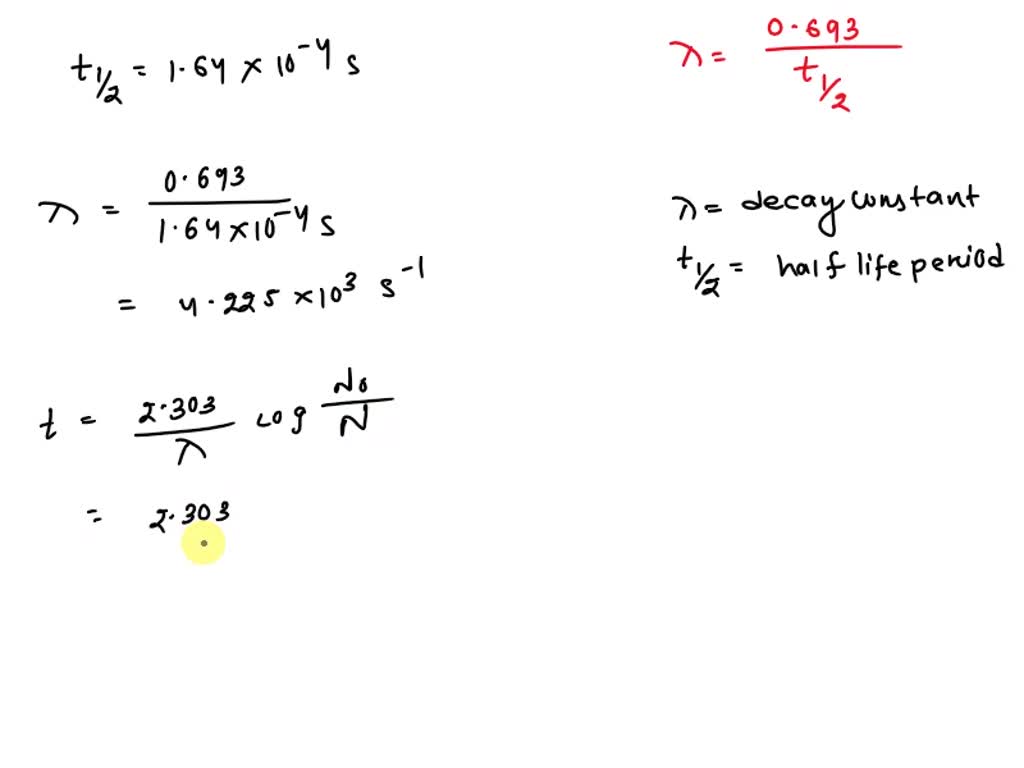 t1/2 = 1.64 × 10⁻⁴ s
λ = 0.693 / t1/2
λ = 0.693 / 1.64 × 10⁻⁴ s
= 4.225 × 10³ s⁻¹
λ = decay constant
t1/2 = half life period
t = 2.303 / λ log N₀ / N
= 2.303